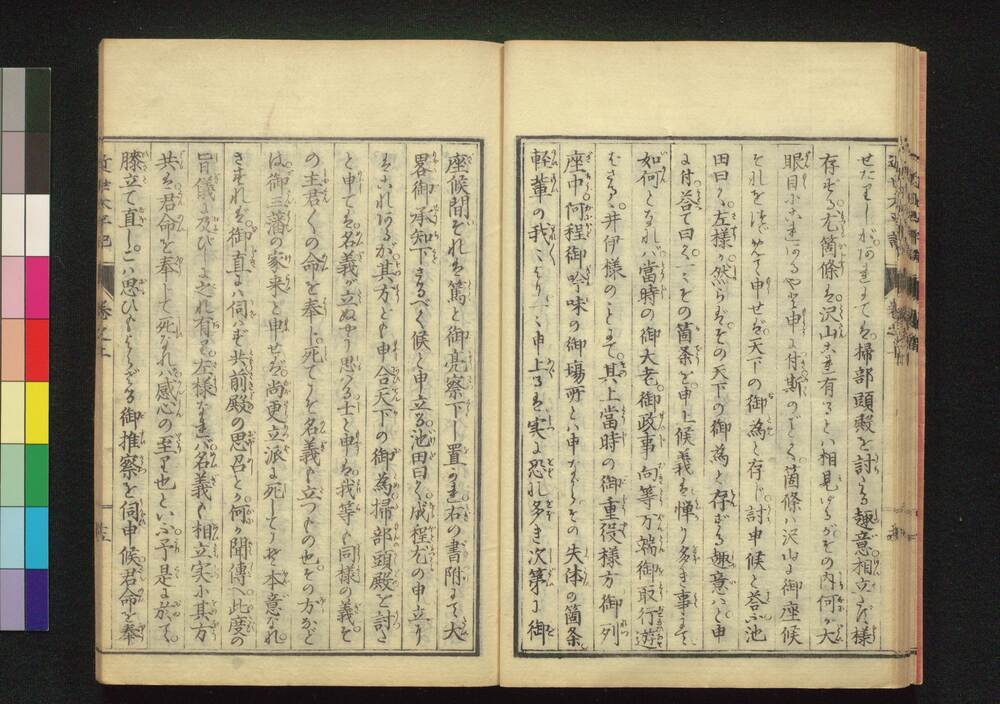 せたわしがこれまでは掃部頭殿を討たる趣意相立ざる様
存ぜる尤箇條は沢山これ有るとは相見ゆるがその内何が大
眼目にこれあるや申に付斯のごとく箇條は沢山に御座候
それを申せば天下の御為と存じ討申候と答ふ池
田曰く左様か然らばその天下の御為と存ずる趣意はと申
に付答て曰くその箇条を申上候義は憚り多き事にて
如何となれば當時の御大老御政事向等万端御取行遊
ばさるゝ井伊様のことにて其上當時の御重役様方御列
座中何程御吟味の御場所とは申ながらその失体の箇条
軽輩の我より申上るは実に恐れ多き次第に御
座候間それを篤と御亮察下し置かれ右の書附にて大
畧御承知下さるべく候と申立る池田曰く成程尤の申立り
はこれあるが其方ども申合天下の御為掃部頭殿を討さ
と申ては名義が立ぬやう思はる士と申は我等も同様の義を
の主君くの命を奉じ死てこそ名義も立つもの也その方など
は御三藩の家来と申せば尚更立派に死してこそ本意なれ
さすれば御直には伺はず共前殿の思召とか何か聞傳へ此度の
旨儀に及びしよこれ有らん左様なれば名義も相立実に其方
共は君命を奉じて死なれば感心の至り也といふ予是に於て
膝立て直しこは思ひもよらざる御推察を伺申候君命を奉